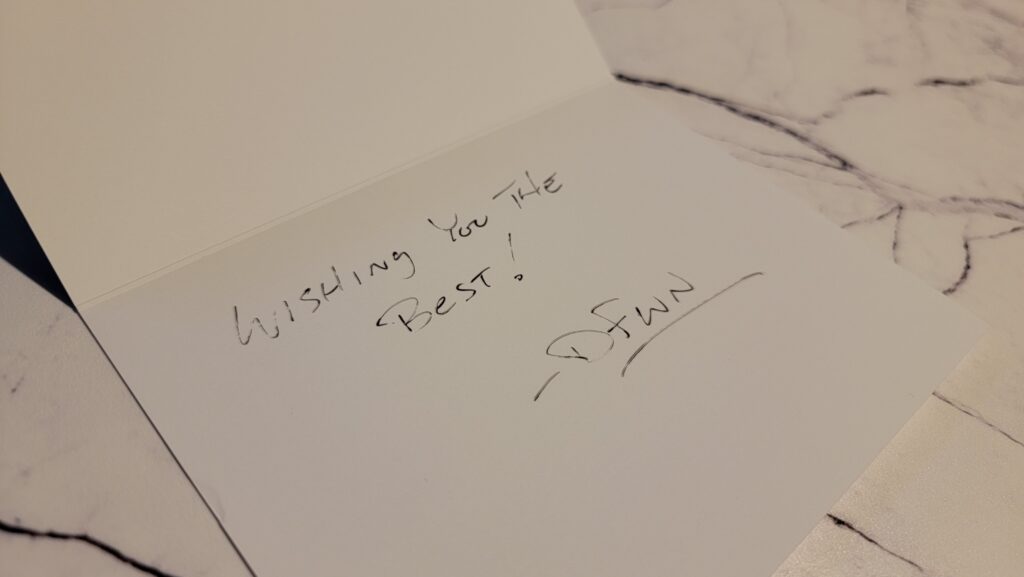 WISHING YOU THE
BEST!
DFWN